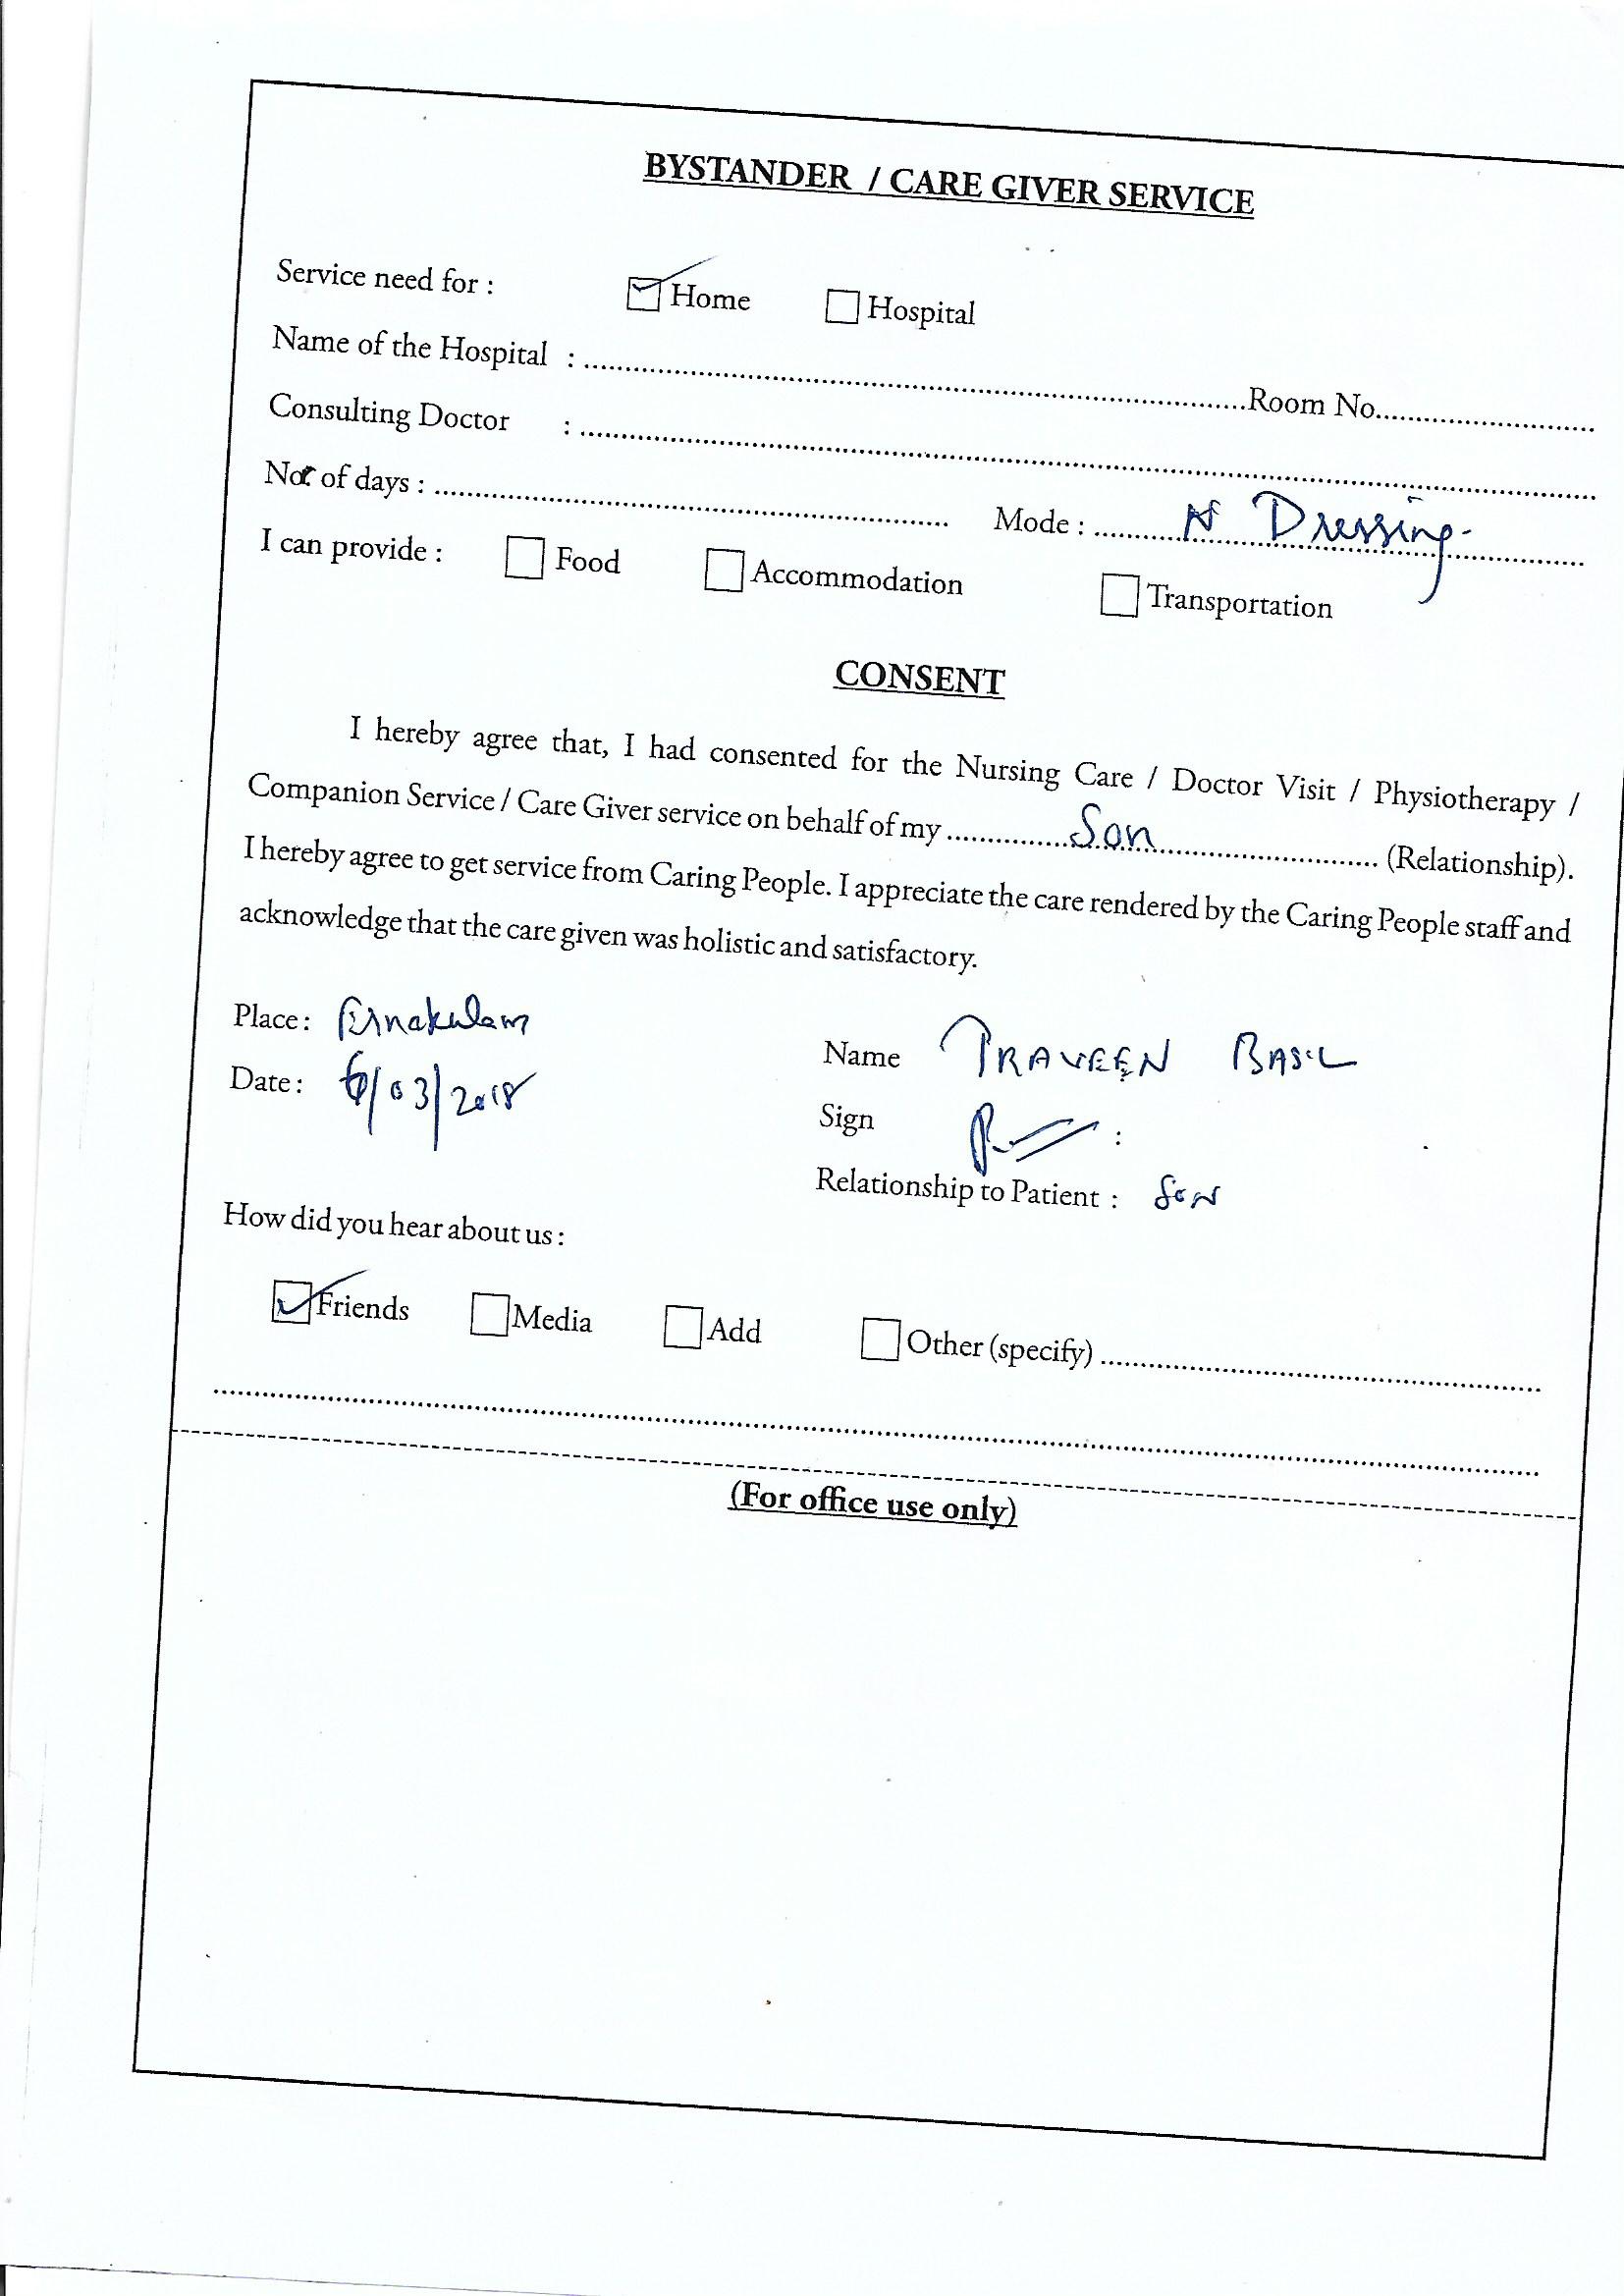 BYSTANDER / CARE GIVER SERVICE
Service need for : Home Hospital
Name of the Hospital : ........ Room No........
Consulting Doctor : ........
No of days : ........ Mode : ........ Dressing
I can provide : Food Accommodation Transportation
CONSENT
I hereby agree that, I had consented for the Nursing Care / Doctor Visit / Physiotherapy /
Companion Service / Care Giver service on behalf of my ........ Son ........ (Relationship).
I hereby agree to get service from Caring People. I appreciate the care rendered by the Caring People staff and
acknowledge that the care given was holistic and satisfactory.
Place: Ernakulam
Date: /03/2018
Name PRAVEEN BASIL
Sign :
Relationship to Patient : SON
How did you hear about us :
Friends Media Add Other (specify) ........
(For office use only)